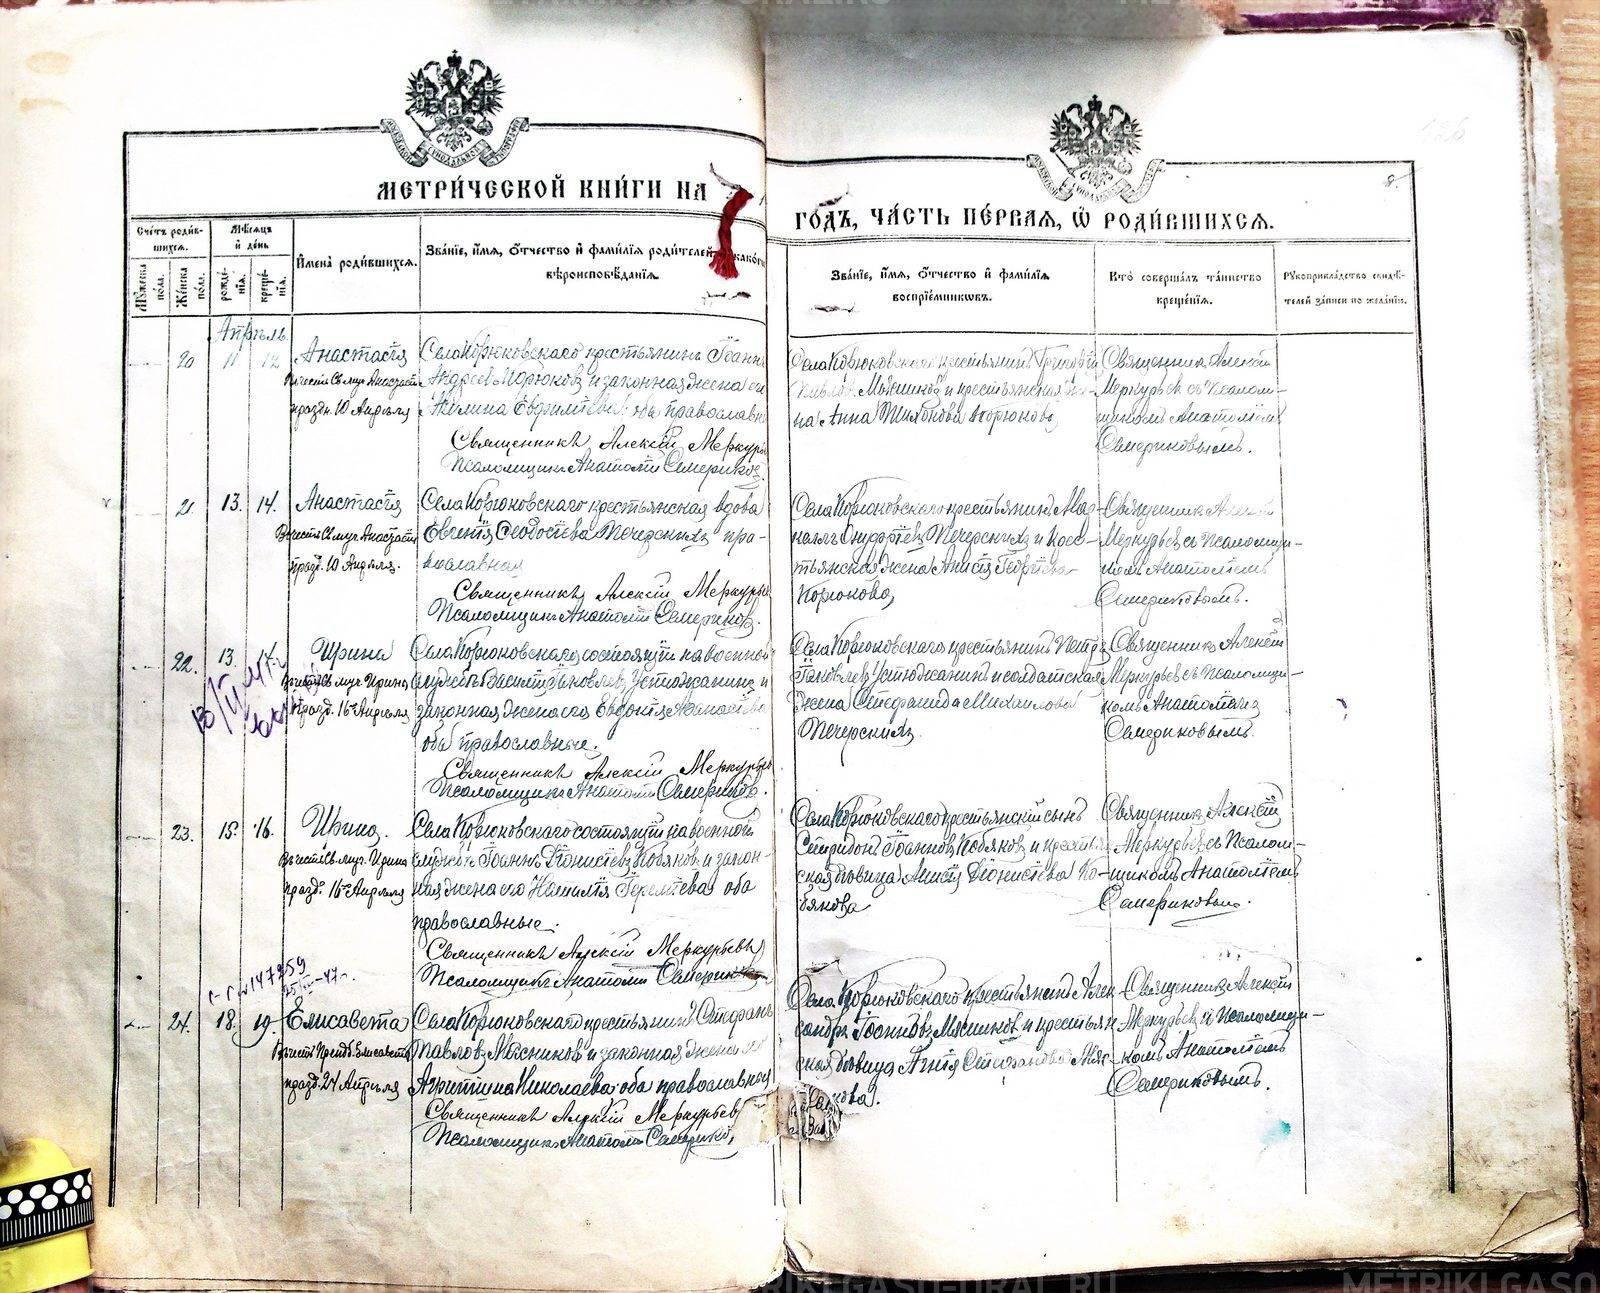 МЕТРИ́ЧЕСКОЙ КНИ́ГИ НА
ГО́ДЪ, ЧА́СТЬ ПЕ́РВАЯ, Ѡ҆ РОДИ́ВШИХСЯ.
Сче́тъ роди́в-
шихся.
Мꙋ́жеска
по́ла.
Же́нска
по́ла.
Мѣ́сяцъ
и҆ де́нь
рожде́-
нїя.
креще́-
нїя.
И҆мена̀ роди́вшихся.
Зва́нїе, и҆́мя, ѻ҆́тчество и҆ фами́лїя роди́телей
вѣроисповѣ́данїя.
Зва́нїе, и҆́мя, ѻ҆́тчество и҆ фами́лїя
воспрїе́мниковъ.
Кто̀ соверша́лъ та́инство
креще́нїя.
Рꙋкоприкла́дство свидѣ́-
телей за́писи по жела́нїю.
Апрѣль
20
11
12
Анастасія
въ честь Св. муч. Анастасіи
праздн. 10 Апрѣля
Села Корюковскаго крестьянинъ Іоаннъ
Андреевъ Корюковъ и законная жена его
Евфиміева оба православн
Священникъ Алексій Меркурь
Псаломщикъ Анатолій Семериков
Села Корюковскаго крестьянинъ Григорій
Павловъ Мясниковъ и крестьянская
на Анна Корюкова
Священникъ Алексій
Меркурьевъ съ Псалом-
щикомъ Анатоліемъ
Семериковымъ.
21.
13.
14.
Анастасія
Въ честь Св. муч. Анастасіи
празд. 10 Апрѣля.
Села Корюковскаго крестьянская вдова
Евгенія Ѳеодосіева Печерскихъ пра-
вославная
Священникъ Алексій Меркурье
Псаломщикъ Анатолій Семериковъ.
Села Корюковскаго крестьянинъ
Онуфріевъ Печерскихъ и крес-
тьянская жена Анисія Георгіева
Корюкова
Священникъ Алексій
Меркурьевъ съ Псаломщи-
комъ Анатоліемъ
Семериковымъ.
22.
13.
14.
Ирина
въ честь Св. муч. Ирины
празд. 16го Апрѣля
Села Корюковскаго состоящій на военной
службѣ Василій Іаковлевъ Устюжанинъ и
законная жена его Евдокія Аѳанасіева
оба православные.
Священникъ Алексій Меркурьевъ
Псаломщикъ Анатолій Семериковъ.
Села Корюковскаго крестьянинъ Петръ
Іаковлевъ Устюжанинъ и солдатская
жена Стефанида Михаилова
Печерскихъ.
Священникъ Алексій
Меркурьевъ съ Псаломщи-
комъ Анатоліемъ
Семериковымъ.
23.
15.
16.
Ирина.
въ честь Св. муч. Ирины
празд. 16го Апрѣля
Села Корюковскаго состоящій на военной
службѣ Іоаннъ Діонисіевъ Кобяковъ и закон-
ная жена его Наталія Іереміева оба
православные.
Священникъ Алексій Меркурьевъ
Псаломщикъ Анатолій Семериковъ
Села Корюковскаго крестьянскій сынъ
Спиридонъ Іоанновъ Кобяковъ и крестьян-
ская дѣвица Анисія Діонисіева Ко-
бякова
Священникъ Алексій
Меркурьевъ съ Псалом-
щикомъ Анатоліемъ
Семериковымъ.
147259
24.
18.
19.
Елисавета
въ честь Преп. Елисаветы
празд. 24 Апрѣля
Села Корюковскаго крестьянинъ Стефанъ
Павловъ Мясниковъ и законная жена его
Агриппина Николаева оба православные
Священникъ Алексій Меркурьевъ
Псаломщикъ Анатолій Семериков
Села Корюковскаго крестьянинъ Алек-
сандръ Іоанновъ Мясниковъ и крестьян
ская дѣвица Агнія Стефанова Мяс-
никова.
Священникъ Алексій
Меркурьевъ съ Псаломщи-
комъ Анатоліемъ
Семериковымъ.
METRIKI.GASO-URAL.RU
METRIKI.GASO